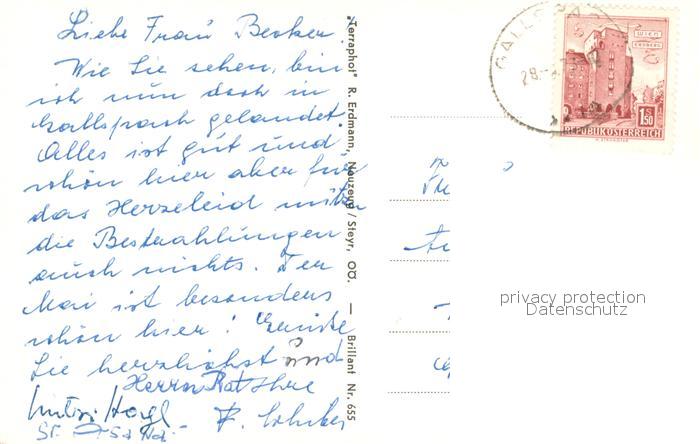 Liebe Frau Becker.
Wie Sie sehen, bin
ich nun doch in
Gallspach gelandet.
Alles ist gut und
schön hier aber für
das Herzeleid nützen
die Bestrahlungen
auch nichts. Der
Mai ist besonders
schön hier! Grüsse
Sie herzlichst und
Herrn Rat Ihre
"Terraphot" R. Erdmann, Neuzeug / Steyr, OÖ. — Brillant Nr. 655
GALLSPA
28.
WIEN
ERDBERG
1.50
REPUBLIK ÖSTERREICH
privacy protection
Datenschutz